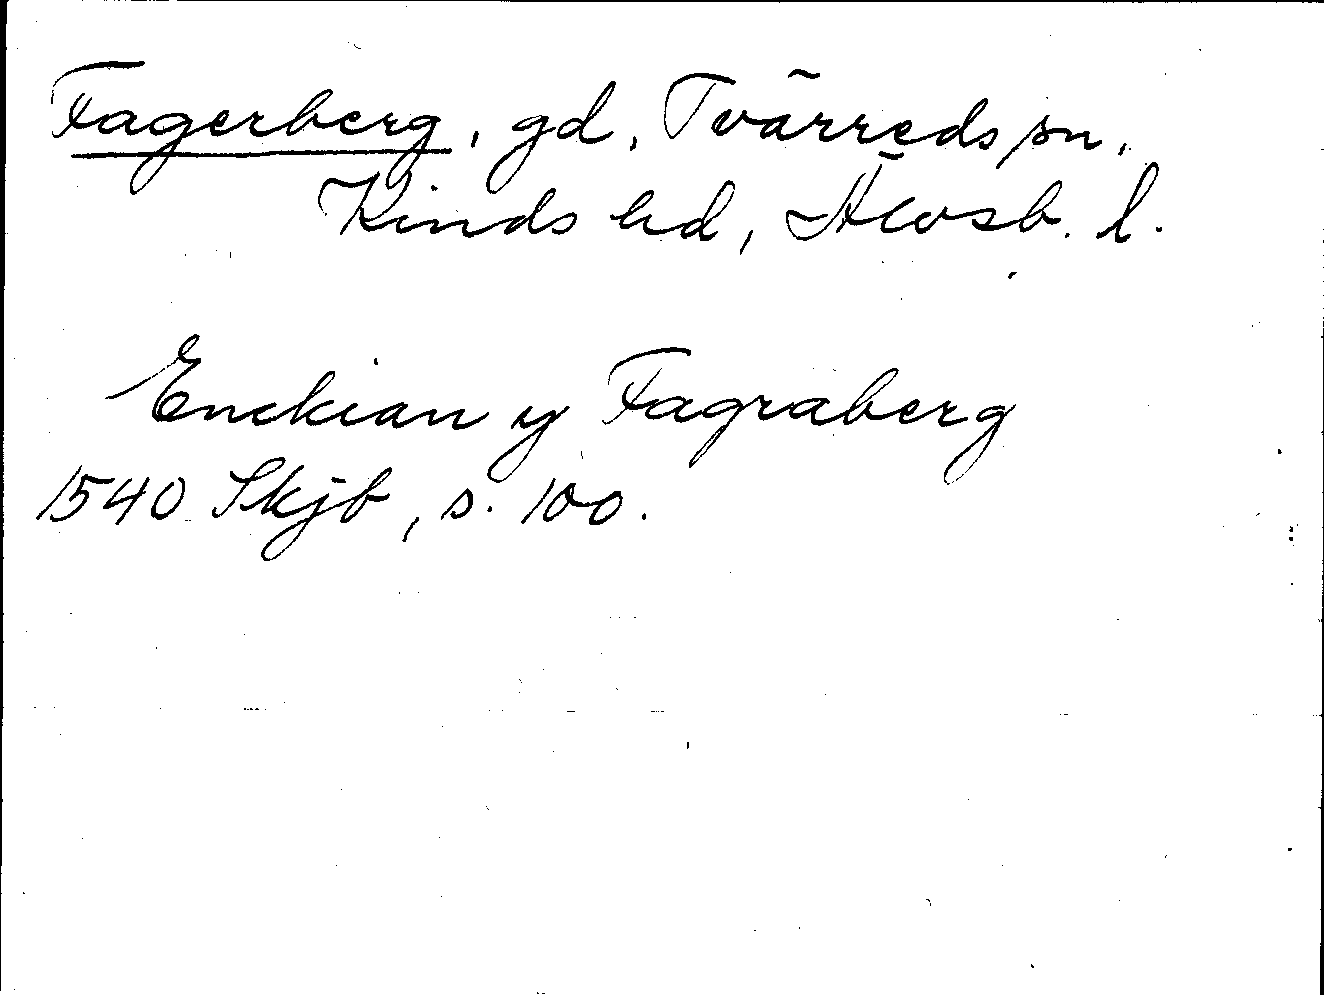 Fagerberg, gd, Tvärreds sn,
Kinds hd, Älvsb. l.
Enckian y Fagraberg
1540 Skjb, s. 100.